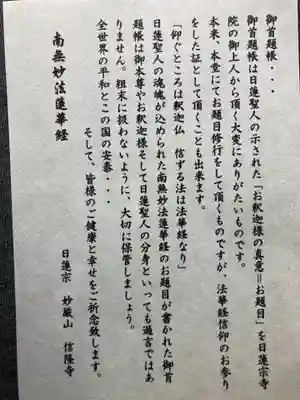 御首題帳・・・
御首題帳は日蓮聖人の示された「お釈迦様の真意=お題目」を日蓮宗寺
院の御上人から頂く大変にありがたいものです。
本来、本堂にてお題目修行をして頂くものですが、法華経信仰のお参り
をした証として頂くことも出来ます。
「仰ぐところは釈迦仏　信ずる法は法華経なり」
日蓮聖人の魂魄が込められた南無妙法蓮華経のお題目が書かれた御首
題帳は御本尊やお釈迦様そして日蓮聖人の分身といっても過言ではあ
りません。粗末に扱わないように、大切に保管しましょう。
全世界の平和とこの国の安泰・・・
そして、皆様のご健康と幸せをご祈念致します。
南無妙法蓮華経
日蓮宗　妙厳山　信隆寺